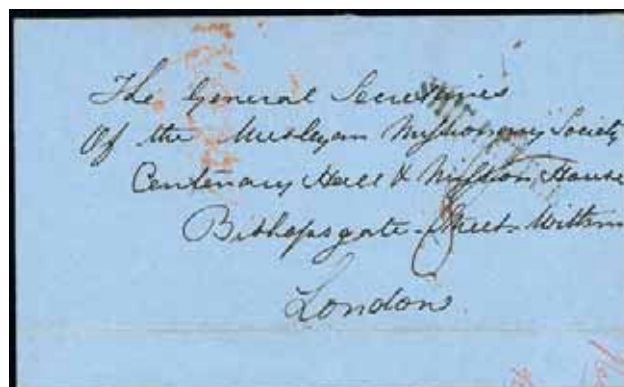 The General Secretaries
Of the Wesleyan Missionary Society
Centenary Hall & Mission House
Bishopsgate Street Within
London